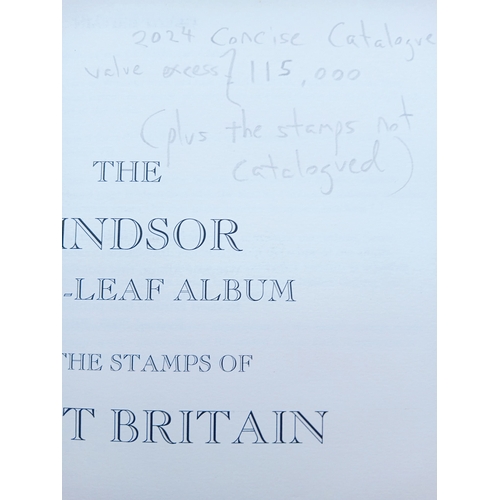 2024 Concise Catalogue
value excess} 115,000
(plus the stamps not
catalogued)
THE
INDSOR
-LEAF ALBUM
THE STAMPS OF
T BRITAIN